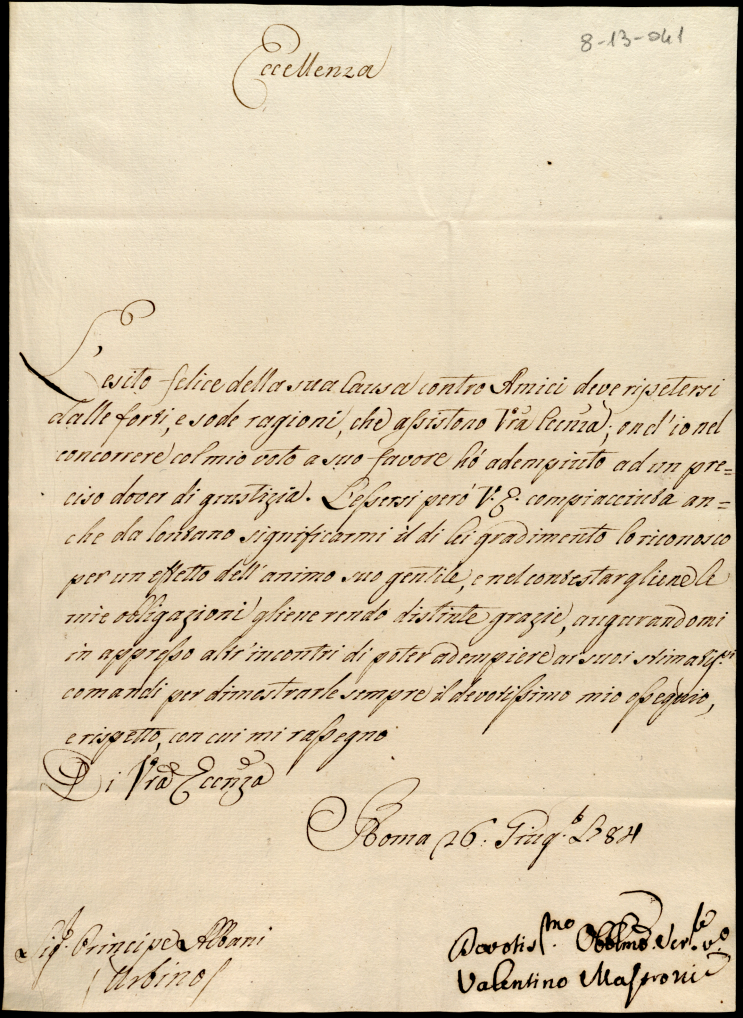 8-13-041
Eccellenza
L'esito felice della sua Causa contro Amici deve ripetersi
dalle forti, e sode ragioni, che assistono Vra Eccnza; ond'io nel
concorrere col mio voto a suo favore hó adempiuto ad un pre=
ciso dover di giustizia. L'essersi peró V. E. compiacciuta an=
che da lontano significarmi il di lei gradimento lo riconosco
per un effetto dell'animo suo gentile, e nel contestargliene le
mie obbligazioni gliene rendo distinte grazie, augurandomi
in appresso altr'incontri di poter adempiere ai suoi stimatsmi
comandi per dimostrarle sempre il devotissimo mio ossequio,
e rispetto, con cui mi rassegno
Di Vra Eccnza
Roma 26. Giug.º 1784
Sig. Principe Albani
Urbino
Devotis.mo Obblmo Ser.e v.o
Valentino